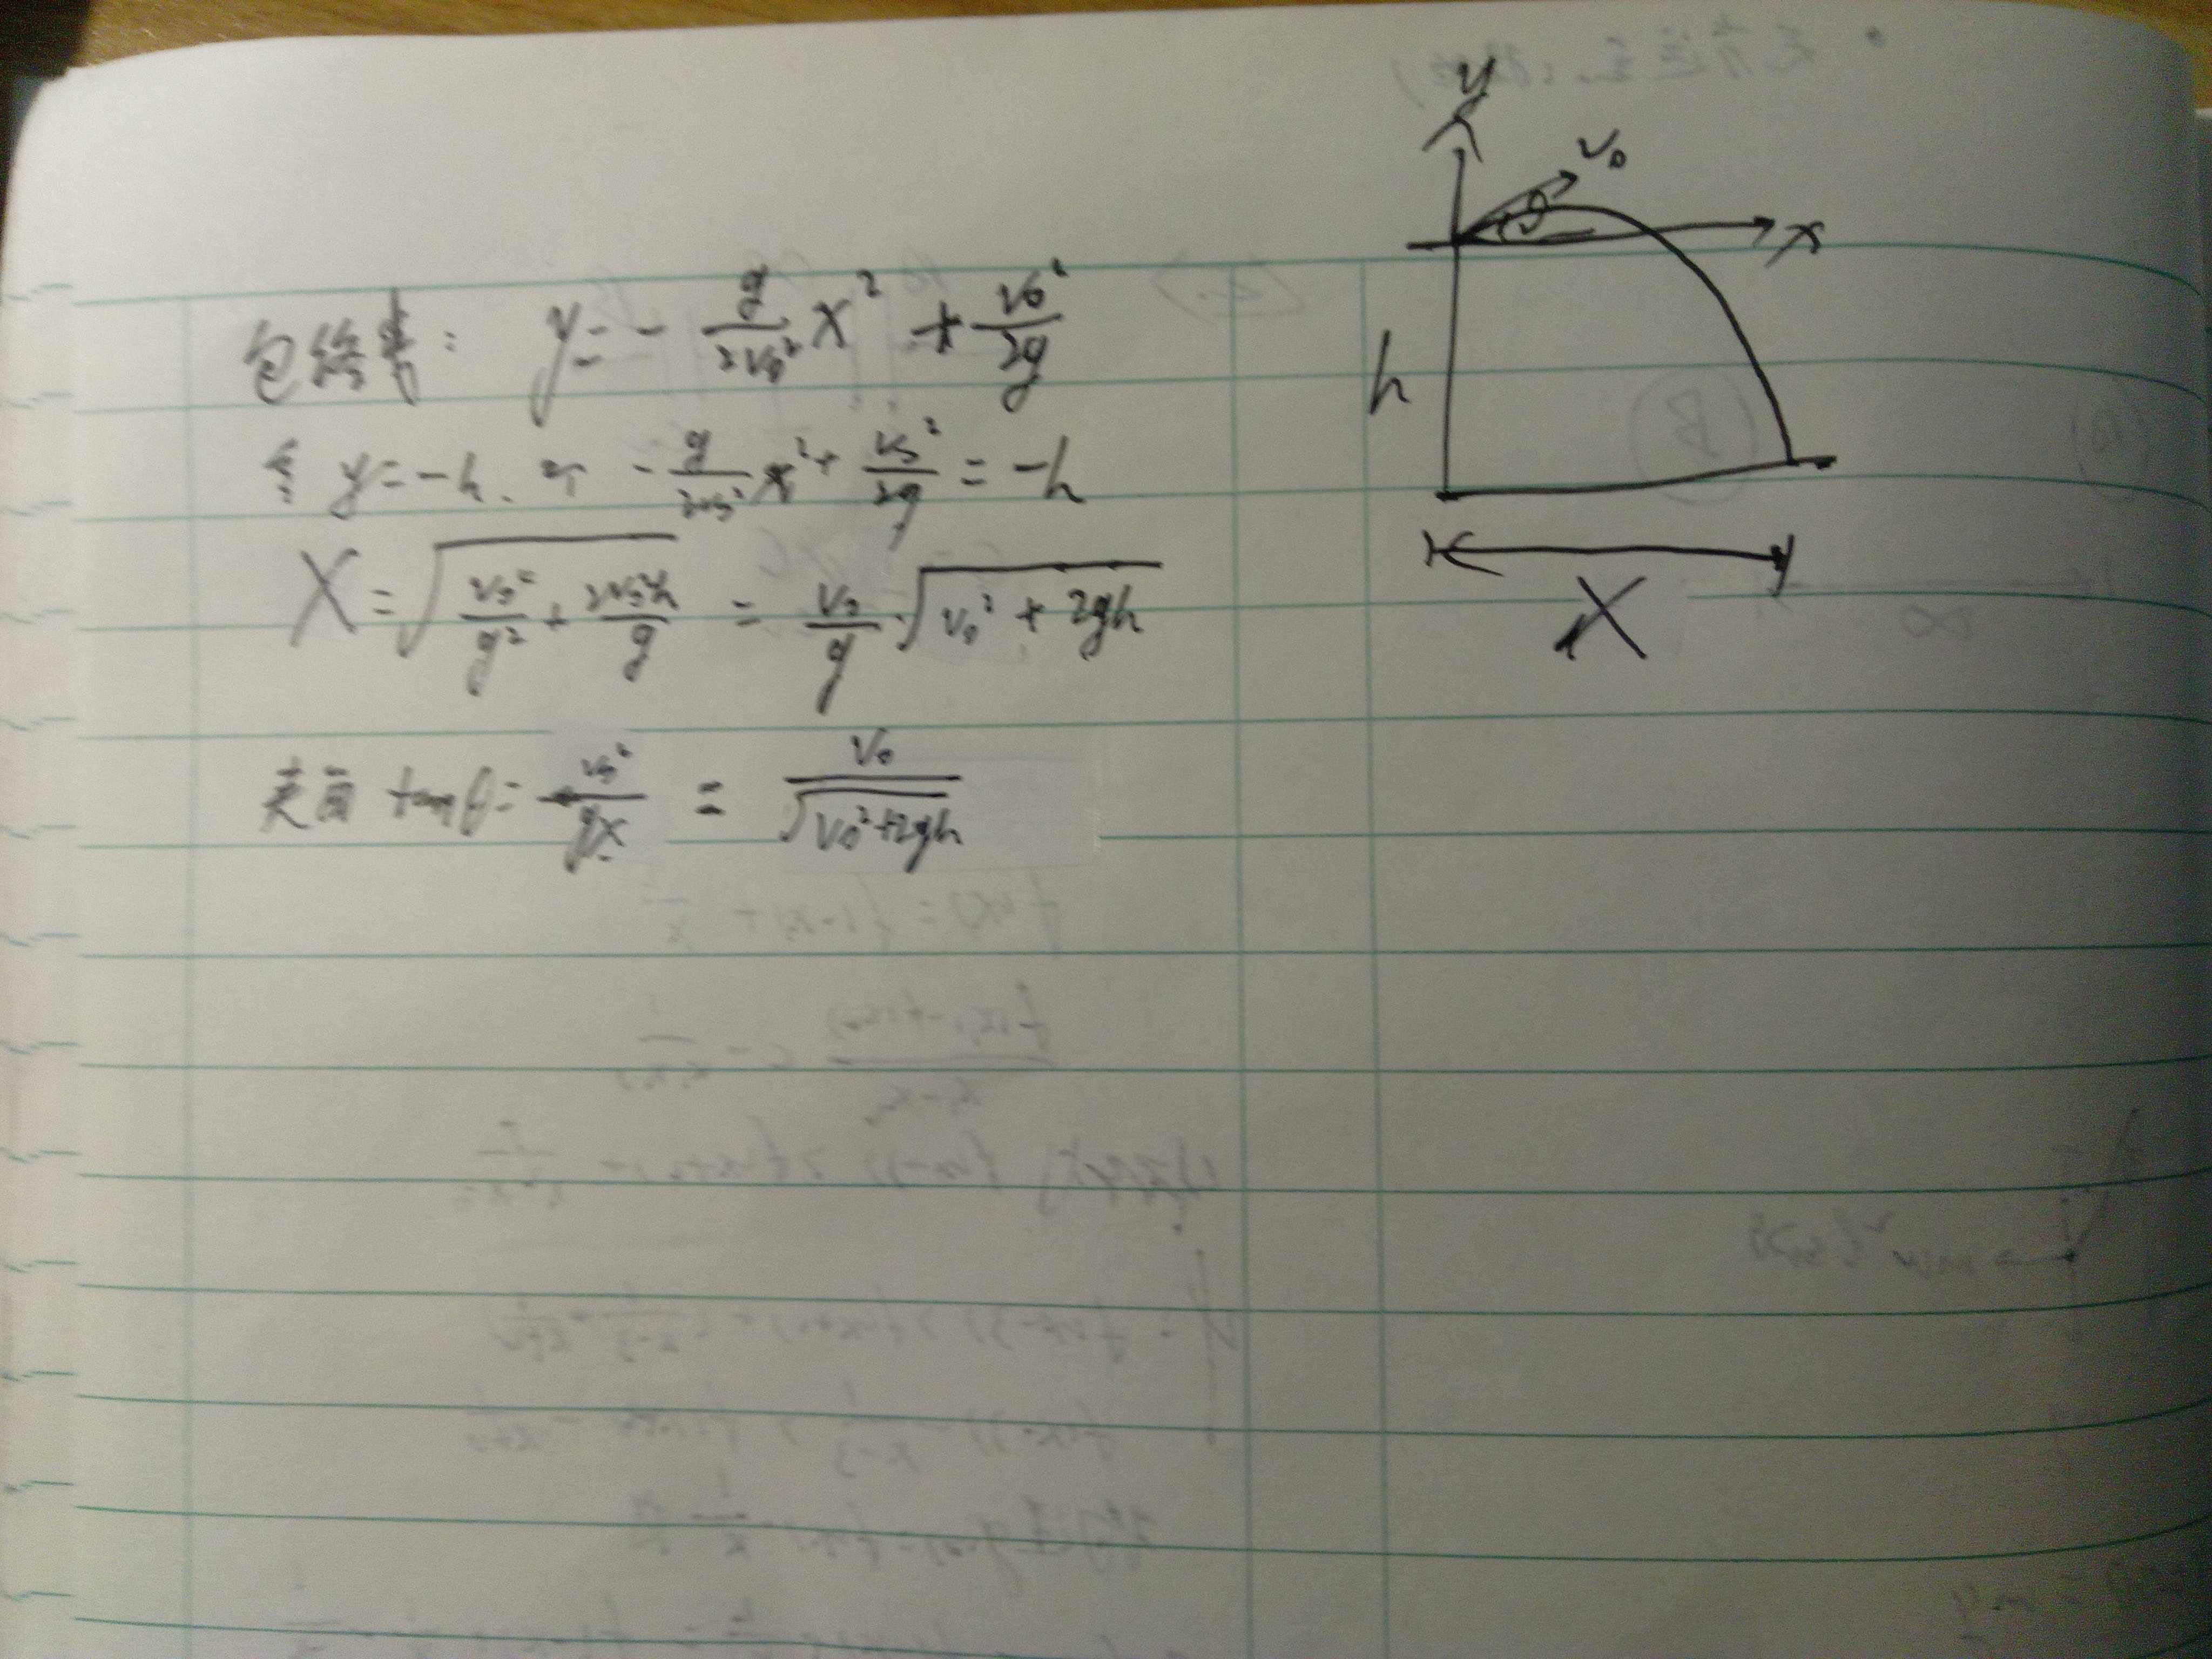 包络线: y = - \frac{g}{2v_0^2} x^2 + \frac{v_0^2}{2g}
令 y = -h. 有 - \frac{g}{2v_0^2} x^2 + \frac{v_0^2}{2g} = -h
X = \sqrt{\frac{v_0^4}{g^2} + \frac{2v_0^2h}{g}} = \frac{v_0}{g} \cdot \sqrt{v_0^2 + 2gh}
tanθ = \frac{v_0^2}{gX} = \frac{v_0}{\sqrt{v_0^2+2gh}}
y
v_0
θ
x
h
X